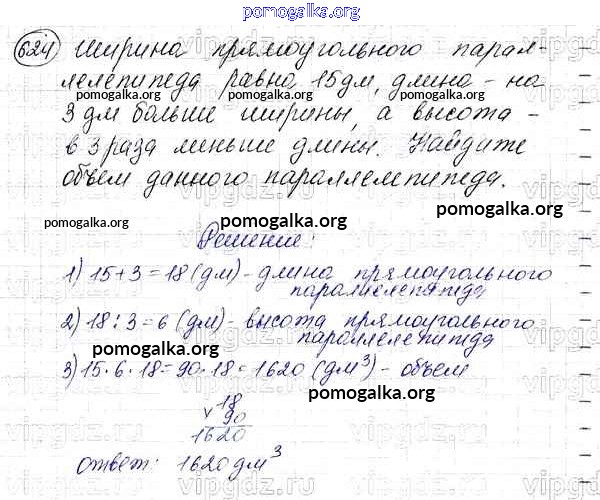 pomogalka.org
624 Ширина прямоугольного парал-
лелепипеда равна 15 дм, длина - на
pomogalka.org pomogalka.org
3 дм больше ширины, а высота -
pomogalka.org pomogalka.org
в 3 раза меньше длины. Найдите
объём данного параллелепипеда.
pomogalka.org pomogalka.org pomogalka.org
Решение:
1) 15+3=18 (дм) - длина прямоугольного
параллелепипеда
2) 18:3=6 (дм) - высота прямоугольного
параллелепипеда
pomogalka.org
3) 15·6·18=90·18=1620 (дм³) - объём
pomogalka.org
18
× 90
1620
ответ: 1620 дм³
pomogalka.org
vipgdz.ru